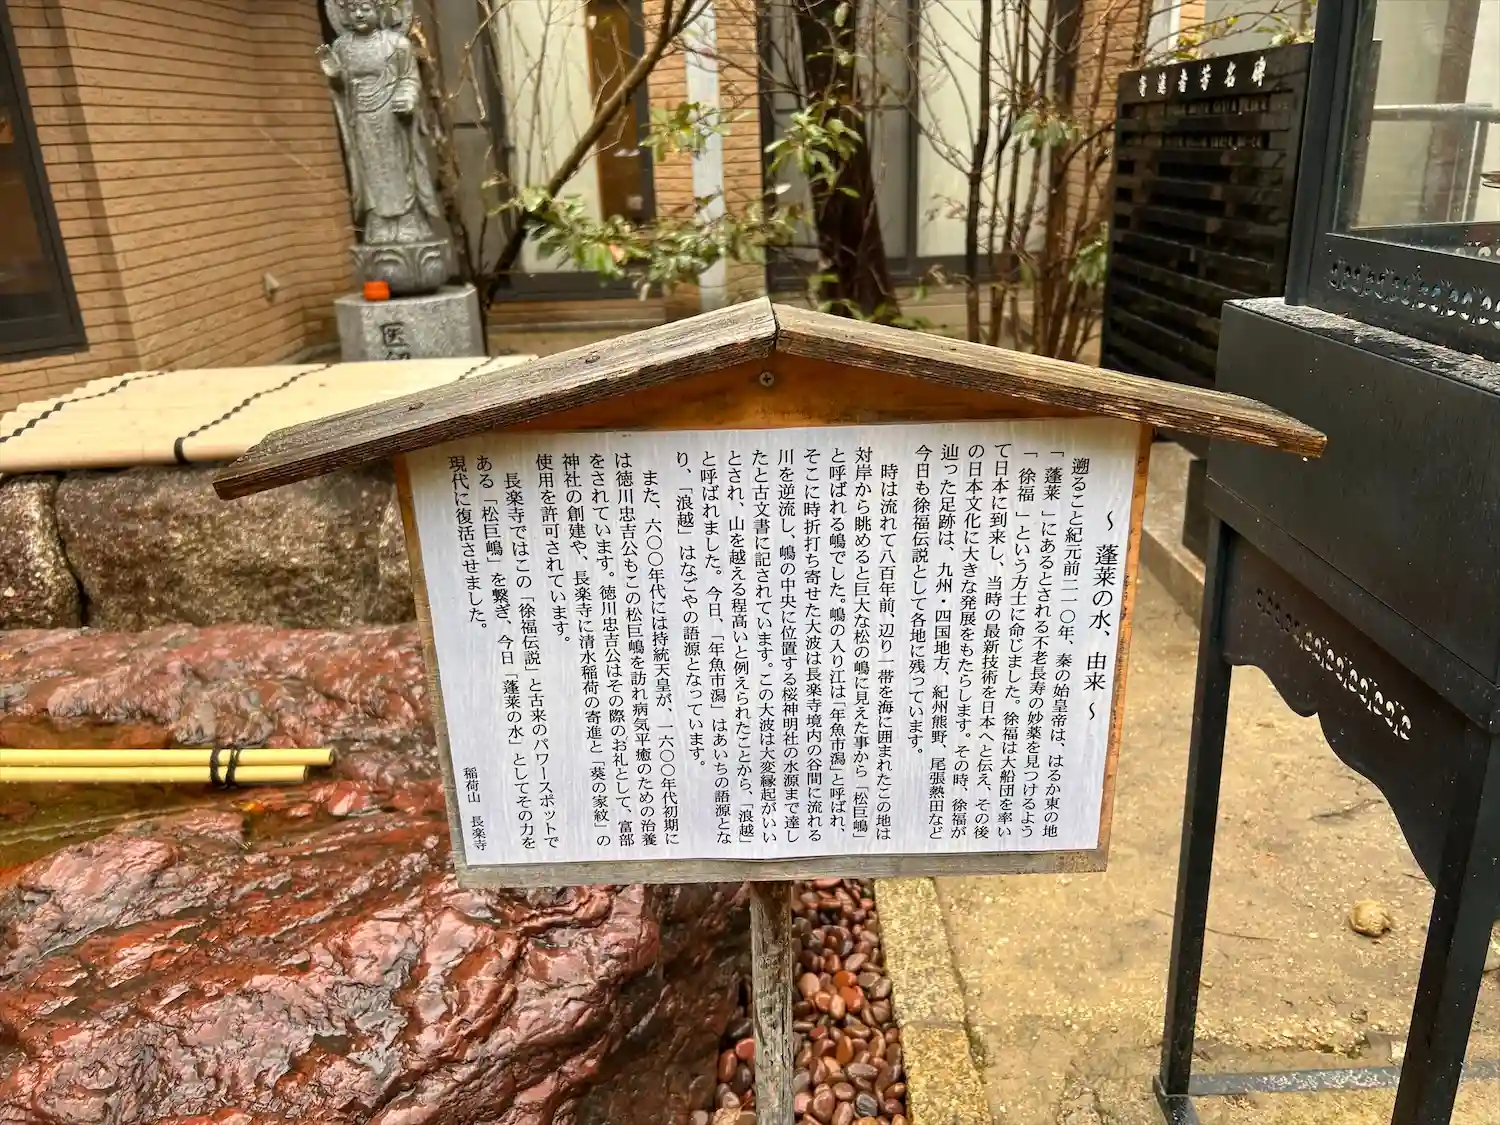 ～ 蓬莱の水、由来 ～
遡ること紀元前二一〇年、秦の始皇帝は、はるか東の地
「蓬莱」にあるとされる不老長寿の妙薬を見つけるよう
「徐福」という方士に命じました。徐福は大船団を率い
て日本に到来し、当時の最新技術を日本へと伝え、その後
の日本文化に大きな発展をもたらします。その時、徐福が
辿った足跡は、九州・四国地方、紀州熊野、尾張熱田など
今日も徐福伝説として各地に残っています。
時は流れて八百年前、辺り一帯を海に囲まれたこの地は
対岸から眺めると巨大な松の嶋に見えた事から「松巨嶋」
と呼ばれる嶋でした。嶋の入り江は「年魚市潟」と呼ばれ、
そこに時折打ち寄せた大波は長楽寺境内の谷間に流れる
川を逆流し、嶋の中央に位置する桜神明社の水源まで達し
たと古文書に記されています。この大波は大変縁起がいい
とされ、山を越える程高いと例えられたことから、「浪越」
と呼ばれました。今日、「年魚市潟」はあいちの語源とな
り、「浪越」はなごやの語源となっています。
また、六〇〇年代には持統天皇が、一六〇〇年代初期に
は徳川忠吉公もこの松巨嶋を訪れ病気平癒のための治養
をされています。徳川忠吉公はその際のお礼として、富部
神社の創建や、長楽寺に清水稲荷の寄進と「葵の家紋」の
使用を許可されています。
長楽寺ではこの「徐福伝説」と古来のパワースポットで
ある「松巨嶋」を繋ぎ、今日「蓬莱の水」としてその力を
現代に復活させました。
稲荷山 長楽寺
寄進者芳名碑
医